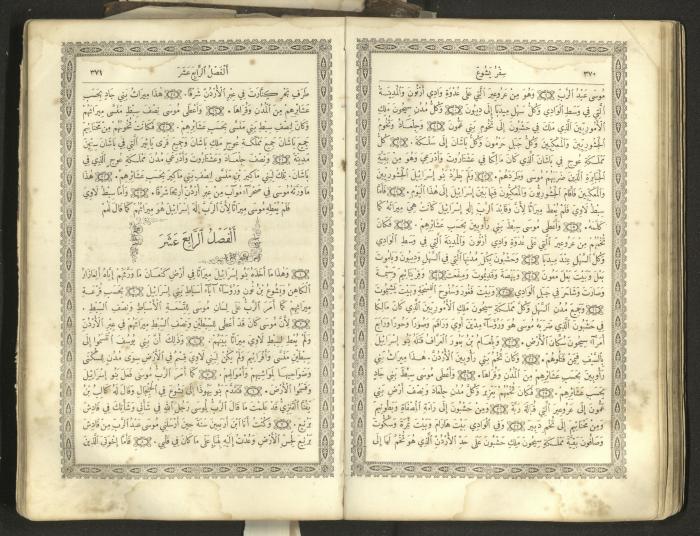 ٣٧٠ سِفْرُ يَشُوعَ
مُوسَى عَبْدُ الرَّبِّ وَهُوَ مِنْ عَرُوعِيرَ الَّتِي عَلَى عُدْوَةِ وَادِي أَرْنُونَ وَالْمَدِينَةُ
الَّتِي فِي وَسَطِ الْوَادِي وَكُلُّ سَهْلِ مِيدَبَا إِلَى دِيبُونَ وَكُلُّ مُدُنِ سِيحُونَ مَلِكِ
الْأَمُورِيِّينَ الَّذِي مَلَكَ فِي حَشْبُونَ إِلَى تُخُومِ بَنِي عَمُّونَ وَجِلْعَادُ وَتُخُومُ
الْجَشُورِيِّينَ وَالْمَعْكِيِّينَ وَكُلُّ جَبَلِ حَرْمُونَ وَكُلُّ بَاشَانَ إِلَى سَلْكَةَ. كُلُّ
مَمْلَكَةِ عُوجٍ فِي بَاشَانَ الَّذِي كَانَ مَالِكًا فِي عَشْتَارُوتَ وَأَذْرَعِي وَهُوَ مِنْ بَقِيَّةِ
الْجَبَابِرَةِ الَّذِينَ ضَرَبَهُمْ مُوسَى وَطَرَدَهُمْ. وَلَمْ يَطْرُدْ بَنُو إِسْرَائِيلَ الْجَشُورِيِّينَ
وَالْمَعْكِيِّينَ فَأَقَامَ الْجَشُورِيُّونَ وَالْمَعْكِيُّونَ فِيمَا بَيْنَ إِسْرَائِيلَ إِلَى هٰذَا الْيَوْمِ. فَأَمَّا
سِبْطُ لَاوِي فَلَمْ يُعْطِهِ مُوسَى مِيرَاثًا لِأَنَّ وَقَائِدَ الرَّبِّ إِلٰهِ إِسْرَائِيلَ كَانَتْ هِيَ مِيرَاثَهُ كَمَا
كَلَّمَهُ. وَأَعْطَى مُوسَى سِبْطَ بَنِي رَأُوبِينَ بِحَسَبِ عَشَائِرِهِمْ. فَكَانَ
تُخُمُهُمْ مِنْ عَرُوعِيرَ الَّتِي عَلَى عُدْوَةِ وَادِي أَرْنُونَ وَالْمَدِينَةُ الَّتِي فِي وَسَطِ الْوَادِي
وَكُلُّ السَّهْلِ عِنْدَ مِيدَبَا وَحَشْبُونُ بِكُلِّ مُدُنِهَا الَّتِي فِي السَّهْلِ وَدِيبُونُ وَبَامُوتُ
بَعْلَ وَبَيْتُ بَعْلَ مَعُونَ وَيَهْصَةُ وَقَدِيمُوتُ وَمِيفَعَتُ وَقِرْيَتَائِيمُ وَسَبْمَةُ
وَصَارَتُ وَشَاحَرُ فِي جَبَلِ الْوَادِي وَبَيْتُ فَغُورَ وَسُفُوحُ الْفِسْجَةِ وَبَيْتُ يَشِيمُوتَ
وَجَمِيعُ مُدُنِ السَّهْلِ وَكُلُّ مَمْلَكَةِ سِيحُونَ مَلِكِ الْأَمُورِيِّينَ الَّذِي كَانَ مَالِكًا
فِي حَشْبُونَ الَّذِي ضَرَبَهُ مُوسَى هُوَ وَرُؤَسَاءَ مِدْيَنَ أَوِي وَرَاقَمَ وَصُورَ وَحُورَ وَرَابَعَ
أُمَرَاءَ سِيحُونَ سُكَّانَ الْأَرْضِ. وَبِلْعَامُ بْنُ بَعُورَ الْعَرَّافُ قَتَلَهُ بَنُو إِسْرَائِيلَ
بِالسَّيْفِ فِيمَنْ قَتَلُوهُمْ. وَكَانَ تُخُمُ بَنِي رَأُوبِينَ الْأُرْدُنَّ. هٰذَا مِيرَاثُ بَنِي
رَأُوبِينَ بِحَسَبِ عَشَائِرِهِمْ مِنَ الْمُدُنِ وَقُرَاهَا. وَأَعْطَى مُوسَى سِبْطَ بَنِي جَادٍ
بِحَسَبِ عَشَائِرِهِمْ. فَكَانَ تُخُمُهُمْ يَعْزِيرَ وَكُلَّ مُدُنِ جِلْعَادَ وَنِصْفَ أَرْضِ بَنِي
عَمُّونَ إِلَى عَرُوعِيرَ الَّتِي قُبَالَةَ رَبَّةَ وَمِنْ حَشْبُونَ إِلَى رَامَةِ الْمِصْفَاةِ وَبَطُونِيمَ
وَمِنْ مَحَنَائِيمَ إِلَى تُخُمِ دَبِيرَ وَفِي الْوَادِي بَيْتُ هَارَامَ وَبَيْتُ نِمْرَةَ وَسُكُّوتُ
وَصَافُونُ بَقِيَّةُ مَمْلَكَةِ سِيحُونَ مَلِكِ حَشْبُونَ عَلَى حَدِّ الْأُرْدُنِّ الَّذِي هُوَ تُخُمٌ لَهَا إِلَى
أَلْفَصْلُ الرَّابِعَ عَشَرَ ٣٧١
طَرَفِ بَحْرِ كِنَّارَتَ فِي عِبْرِ الْأُرْدُنِّ شَرْقًا. هٰذَا مِيرَاثُ بَنِي جَادٍ بِحَسَبِ
عَشَائِرِهِمْ مِنَ الْمُدُنِ وَقُرَاهَا. وَأَعْطَى مُوسَى نِصْفَ سِبْطِ مَنَسَّى مِيرَاثَهُمْ
وَكَانَ لِنِصْفِ سِبْطِ بَنِي مَنَسَّى بِحَسَبِ عَشَائِرِهِمْ. فَكَانَتْ تُخُومُهُمْ مِنْ مَحَنَائِيمَ
جَمِيعَ بَاشَانَ جَمِيعَ مَمْلَكَةِ عُوجٍ مَلِكِ بَاشَانَ وَجَمِيعَ قُرَى يَائِيرَ الَّتِي فِي بَاشَانَ سِتِّينَ
مَدِينَةً وَنِصْفَ جِلْعَادَ وَعَشْتَارُوتَ وَأَذْرَعِي مُدُنَ مَمْلَكَةِ عُوجٍ الَّتِي فِي
بَاشَانَ. تِلْكَ لِبَنِي مَاكِيرَ بْنِ مَنَسَّى لِنِصْفِ بَنِي مَاكِيرَ بِحَسَبِ عَشَائِرِهِمْ. هٰذَا
مَا وَرَّثَهُ مُوسَى فِي صَحْرَاءِ مُوآبَ مِنْ عِبْرِ أُرْدُنِّ أَرِيحَا شَرْقًا. وَأَمَّا سِبْطُ لَاوِي
فَلَمْ يُعْطِهِ مُوسَى مِيرَاثًا لِأَنَّ الرَّبَّ إِلٰهَ إِسْرَائِيلَ هُوَ مِيرَاثُهُمْ كَمَا قَالَ لَهُمْ
أَلْفَصْلُ الرَّابِعَ عَشَرَ
وَهٰذَا مَا أَخَذَهُ بَنُو إِسْرَائِيلَ مِيرَاثًا فِي أَرْضِ كَنْعَانَ مَا وَرَّثَهُمْ إِيَّاهُ أَلِعَازَارُ
الْكَاهِنُ وَيَشُوعُ بْنُ نُونٍ وَرُؤَسَاءُ آبَاءِ أَسْبَاطِ بَنِي إِسْرَائِيلَ بِحَسَبِ قُرْعَةِ
مِيرَاثِهِمْ كَمَا أَمَرَ الرَّبُّ عَلَى لِسَانِ مُوسَى لِتِسْعَةِ الْأَسْبَاطِ وَنِصْفِ السِّبْطِ.
لِأَنَّ مُوسَى كَانَ قَدْ أَعْطَى السِّبْطَيْنِ وَنِصْفَ السِّبْطِ مِيرَاثَهُمْ فِي عِبْرِ الْأُرْدُنِّ
وَلَمْ يُعْطِ السِّبْطَ لَاوِي مِيرَاثًا بَيْنَهُمْ. وَذٰلِكَ أَنَّ بَنِي يُوسُفَ كَانُوا
سِبْطَيْنِ مَنَسَّى وَأَفْرَائِيمَ وَلَمْ يَكُنْ لِبَنِي لَاوِي قِسْمٌ فِي الْأَرْضِ سِوَى مُدُنٍ لِلسُّكْنَى
وَضَوَاحِيهَا لِمَوَاشِيهِمْ وَأَمْوَالِهِمْ. كَمَا أَمَرَ الرَّبُّ مُوسَى فَعَلَ بَنُو إِسْرَائِيلَ
وَقَسَمُوا الْأَرْضَ. فَتَقَدَّمَ بَنُو يَهُوذَا إِلَى يَشُوعَ فِي الْجِلْجَالِ وَقَالَ لَهُ كَالِبُ بْنُ
يَفُنَّا الْقِنِزِّيُّ قَدْ عَلِمْتَ مَا قَالَ الرَّبُّ لِمُوسَى رَجُلِ اللهِ فِي شَأْنِي وَشَأْنِكَ فِي قَادِشَ
بَرْنِيعَ. وَكُنْتُ أَنَا ابْنَ أَرْبَعِينَ سَنَةً حِينَ أَرْسَلَنِي مُوسَى عَبْدُ الرَّبِّ مِنْ قَادِشَ
بَرْنِيعَ لِجَسِّ الْأَرْضِ وَعُدْتُ إِلَيْهِ بِنَبَأٍ عَلَى مَا كَانَ فِي قَلْبِي. فَأَمَّا إِخْوَتِي الَّذِينَ